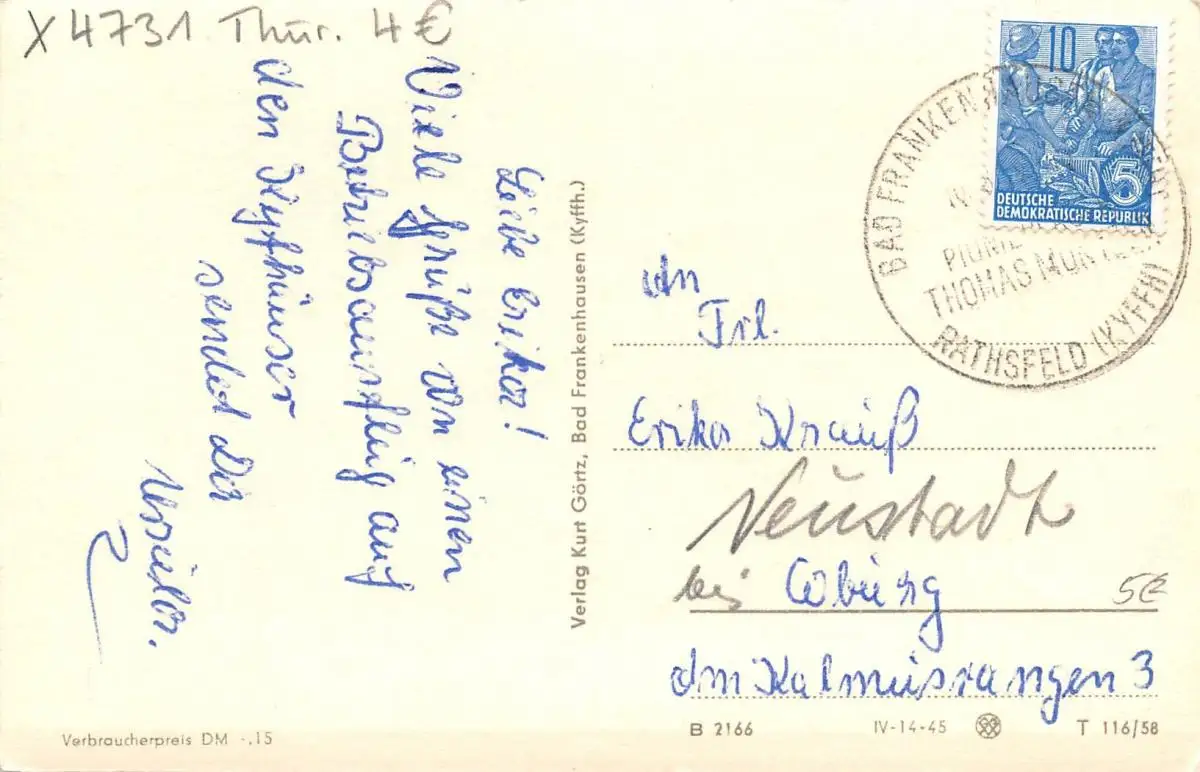 X 4731 Thür. 4 €
Liebe Erika!
Viele Grüße von einen
Betriebsausflug auf
den Kyfhäuser
sendet Dir
Ursula.
Verlag Kurt Görtz, Bad Frankenhausen (Kyffh.)
10
5
DEUTSCHE
DEMOKRATISCHE REPUBLIK
BAD FRANKENHAUSEN
THOMAS MÜNTZER
RATHSFELD (KYFFH)
An
Frl.
Erika Krauß
Neustadt
bei Coburg
5€
Am Kalmusrangen 3
Verbraucherpreis DM -.15
B 2166
IV-14-45
T 116/58